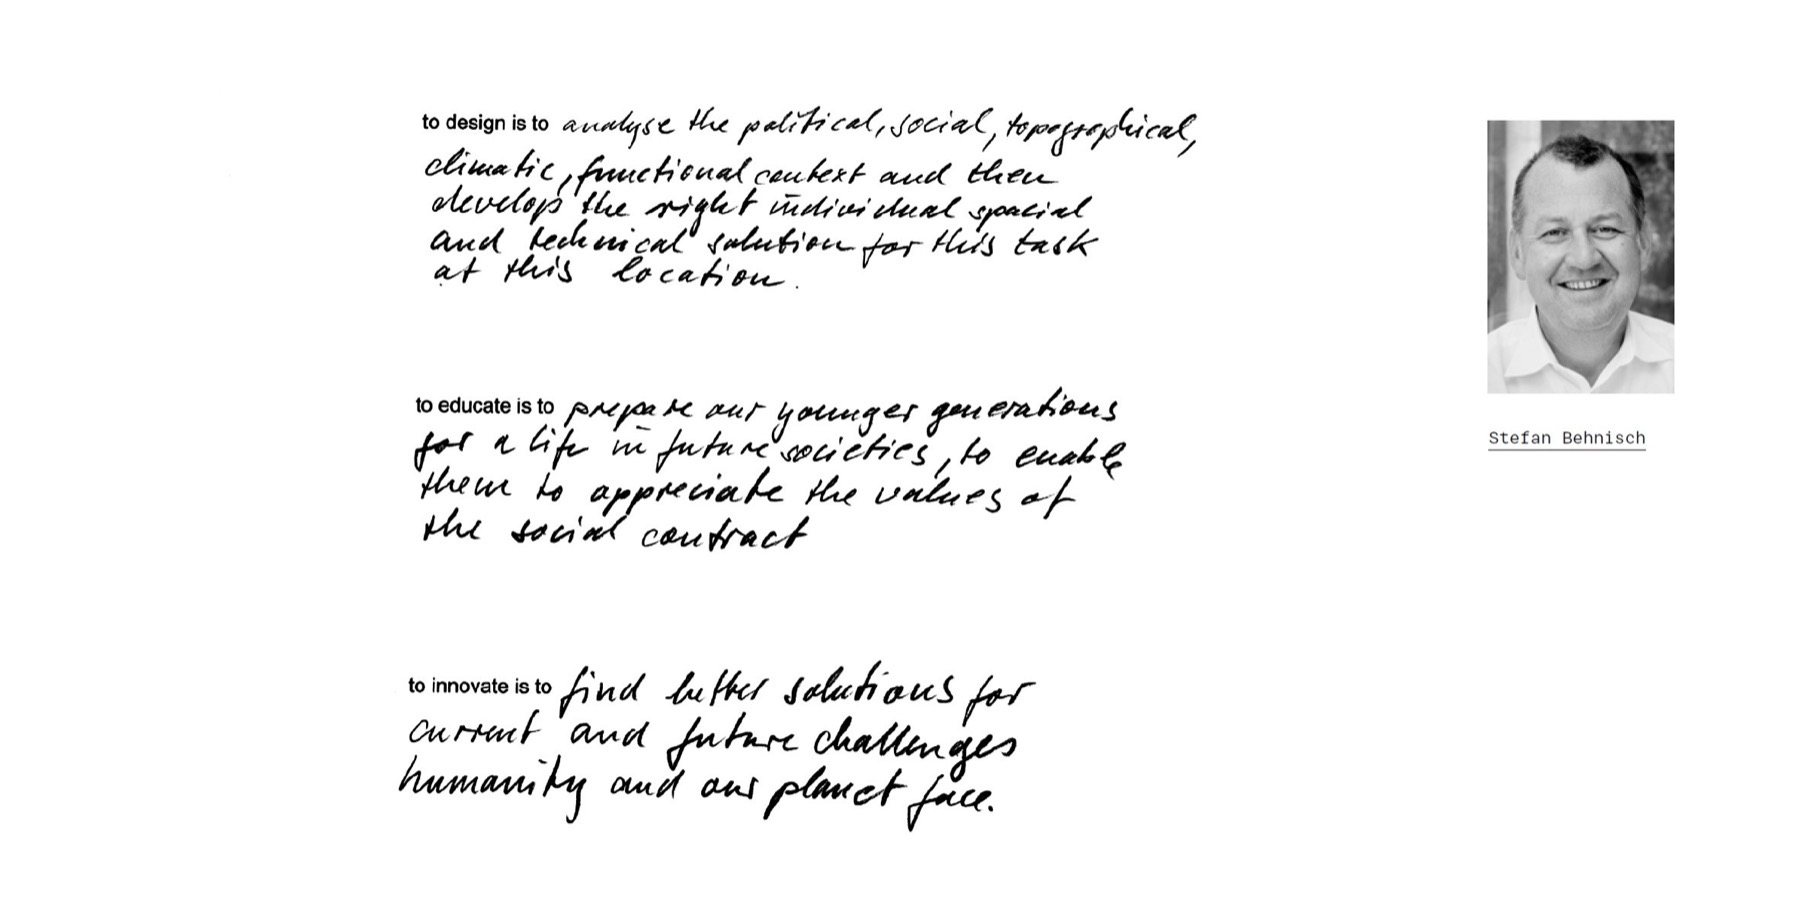 to design is to analyse the political, social, topographical,
climatic, functional context and then
develop the right individual spacial
and technical solution for this task
at this location.
to educate is to prepare our younger generations
for a life in future societies, to enable
them to appreciate the values of
the social contract
to innovate is to find better solutions for
current and future challenges
humanity and our planet face.
Stefan Behnisch